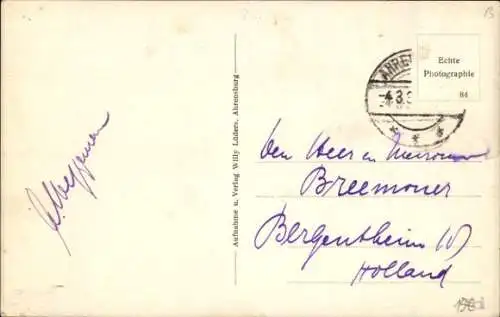 Echte
Photographie
84
AHRE
-4.3.
Aufnahme u. Verlag Willy Lüders, Ahrensburg
den Heer en Mevrouw
Breemouer
Bergentheim (O)
Holland